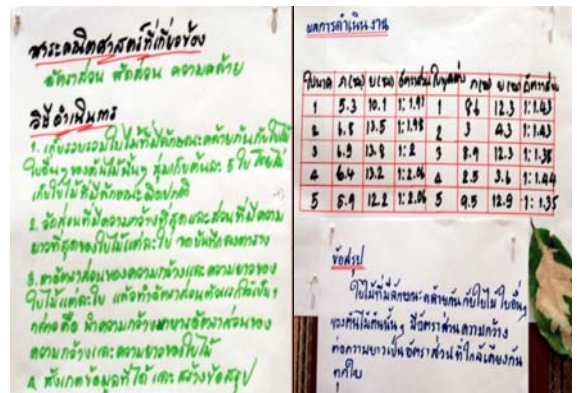 สาระคณิตศาสตร์ที่เกี่ยวข้อง
อัตราส่วน สัดส่วน ความคล้าย
วิธีดำเนินการ
1. เก็บรวบรวมใบไม้ที่มีลักษณะคล้ายกันกับใบไม้
ใบอื่นๆ ของต้นไม้นั้นๆ สุ่มเก็บต้นละ 5 ใบ โดยไม่
เก็บใบไม้ที่มีลักษณะผิดปกติ
2. วัดส่วนที่มีความกว้างที่สุดและส่วนที่มีความ
ยาวที่สุดของใบไม้แต่ละใบ จดบันทึกลงตาราง
3. หาอัตราส่วนของความกว้างและความยาวของ
ใบไม้แต่ละใบ แล้วทำอัตราส่วนตัวแรกให้เป็น 1
กล่าวคือ นำความกว้างมาหารอัตราส่วนของ
ความกว้างและความยาวของใบไม้
4. สังเกตข้อมูลที่ได้ และสร้างข้อสรุป
ผลการดำเนินงาน
ใบขนาด ก(ซม) ย(ซม) อัตราส่วน ก(ซม) ย(ซม) อัตราส่วน
1 5.3 10.1 1:1.91 1 8.6 12.3 1:1.43
2 6.8 13.5 1:1.98 2 3 4.3 1:1.43
3 6.9 13.8 1:2 3 8.9 12.3 1:1.38
4 6.4 13.2 1:2.06 4 2.5 3.6 1:1.44
5 5.9 12.2 1:2.06 5 9.5 12.9 1:1.35
ข้อสรุป
ใบไม้ที่มีลักษณะคล้ายกันกับใบไม้ใบอื่นๆ
ของต้นไม้ต้นนั้นๆ มีอัตราส่วนความกว้าง
ต่อความยาวเป็นอัตราส่วนที่ใกล้เคียงกัน
ทุกใบ